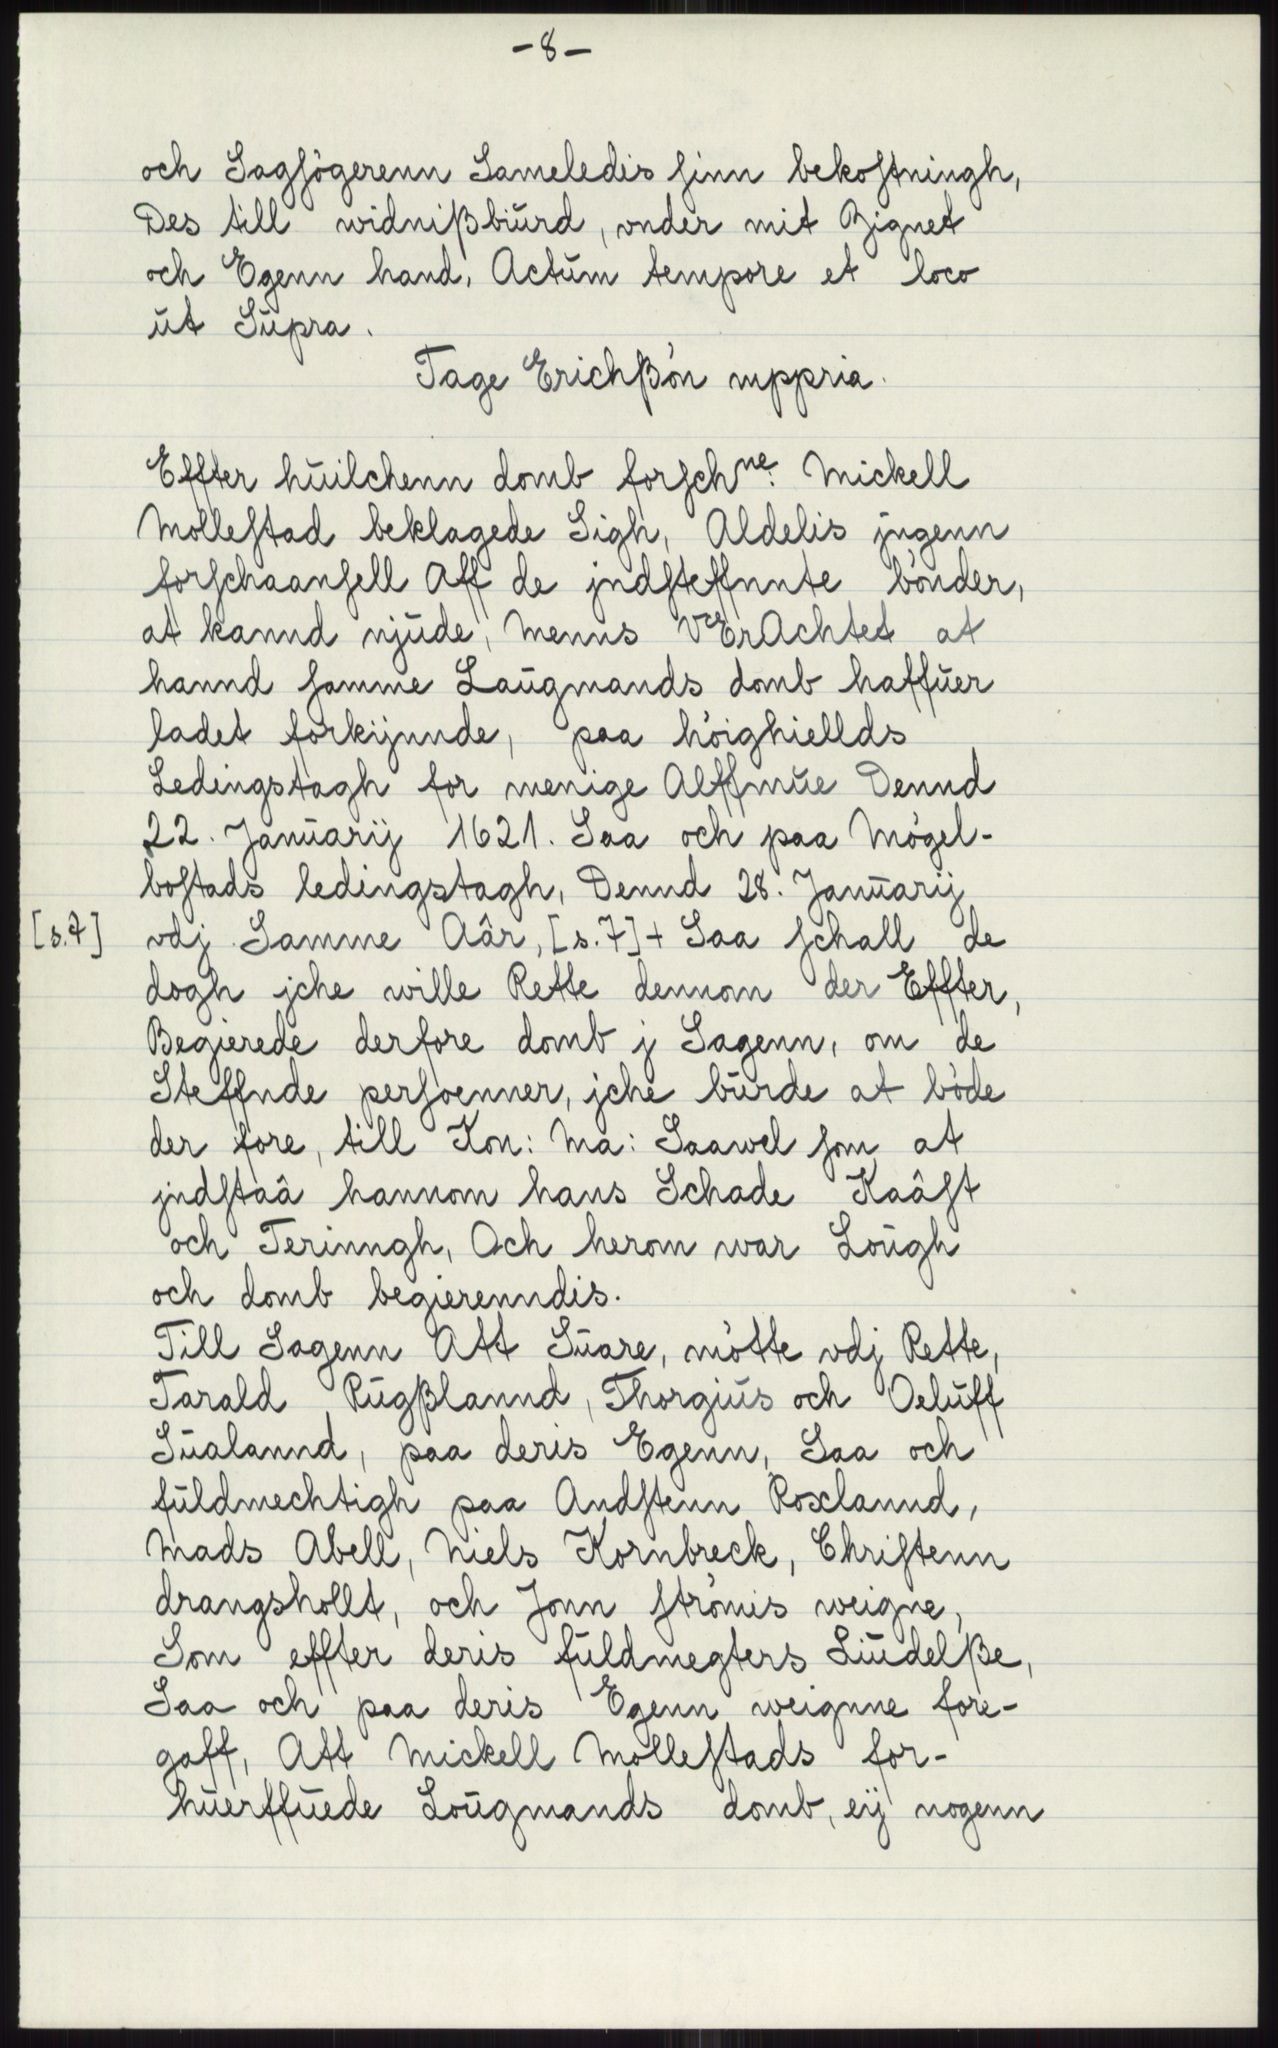 -8-
och Sagsögerenn Sameledis sinn bekostningh,
Des till widnißbiūrd, vnder mit Zignet
och Egenn hand, Actūm tempore et loco
ūt Sūpra.
Tage Erichßön mppria.
Effter hūilchenn domb forschne: Mickell
Mollestad beklagede Sigh, Aldelis jngenn
forschaansell Aff de jndsteffnnte bönder,
at kannd njūde, Menns VErAchtet at
hannd samme Laūgmands domb haffūer
ladet forkijnnde, paa höighiellds
Ledingstagh for menige Alffmūe Dennd
22. Janūarij 1621. Saa och paa Mögel-
bostads ledingstagh, Dennd 28. Janūarij
[s.7] vdj Samme Aâr, [s.7]+ Saa schall de
dogh jche wille Rette dennom der Effter,
Begierede derfore domb j Sagenn, om de
Steffnde persoenner, jche būrde at böde
der fore, till Kon: Ma: Saawel som at
jndstaâ hannom hans Schade Kaâst
och Terinngh, Och herom war Loūgh
och domb begierenndis.
Till Sagenn Att Sūare, mötte vdj Rette,
Tarald Rūgßlannd, Thorgiūs och Oelūff
Sūalannd, paa deris Egenn, Saa och
fūldmechtigh paa Andstenn Roxlannd,
Mads Abell, Niels Kornbreck, Christenn
drangshollt, och Jonn strömis weigne,
Som effter deris fūldmegters Liūdelße,
Saa och paa deris Egenn weignne fore-
gaff, Att Mickell Mollestads for-
hūerffūede Loūgmands domb, eij nogenn